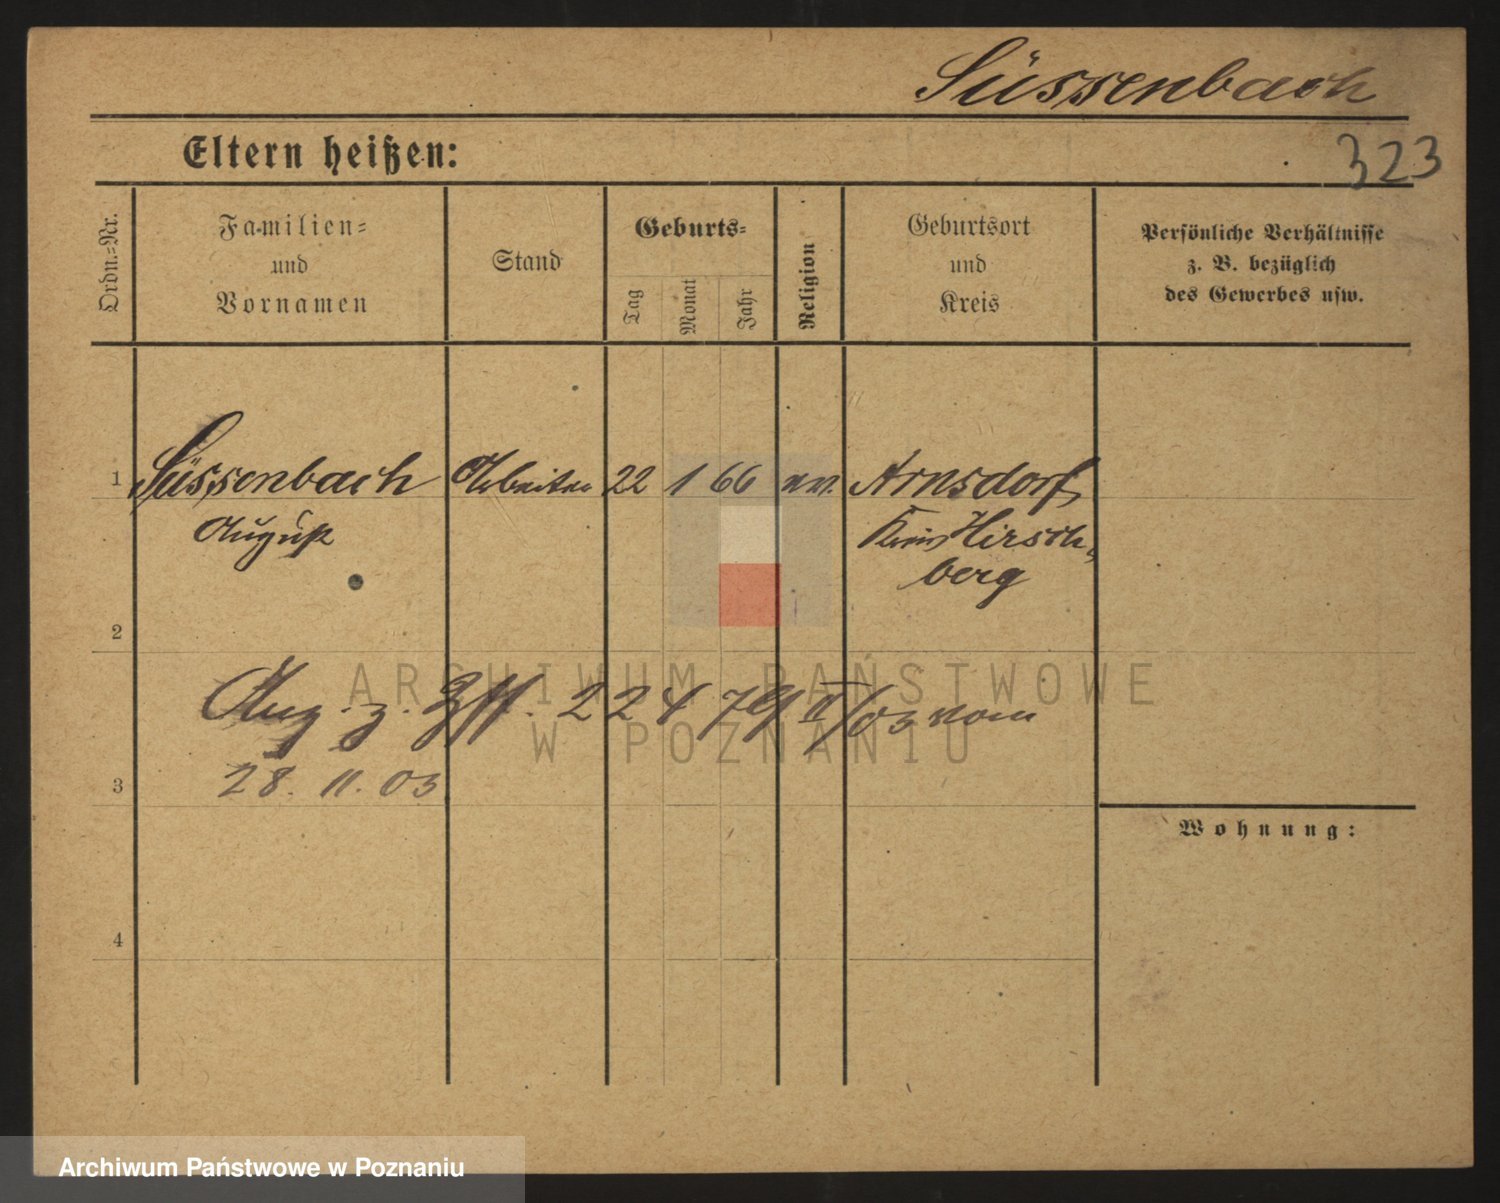 Süssenbach
323
Eltern heißen:
Ordn.-Nr.
Familien- und Vornamen
Stand
Geburts-
Tag
Monat
Jahr
Religion
Geburtsort und Kreis
Persönliche Verhältnisse
z. B. bezüglich
des Gewerbes usw.
1 Süssenbach Arbeiter 22 1 66 ev. Arnsdorf
August Kreis Hirsch-
berg
2
ARCHIWUM PAŃSTWOWE
W POZNANIU
Aug. z. 22 II/03 vom
28. 11. 03
3
Wohnung:
4
Archiwum Państwowe w Poznaniu